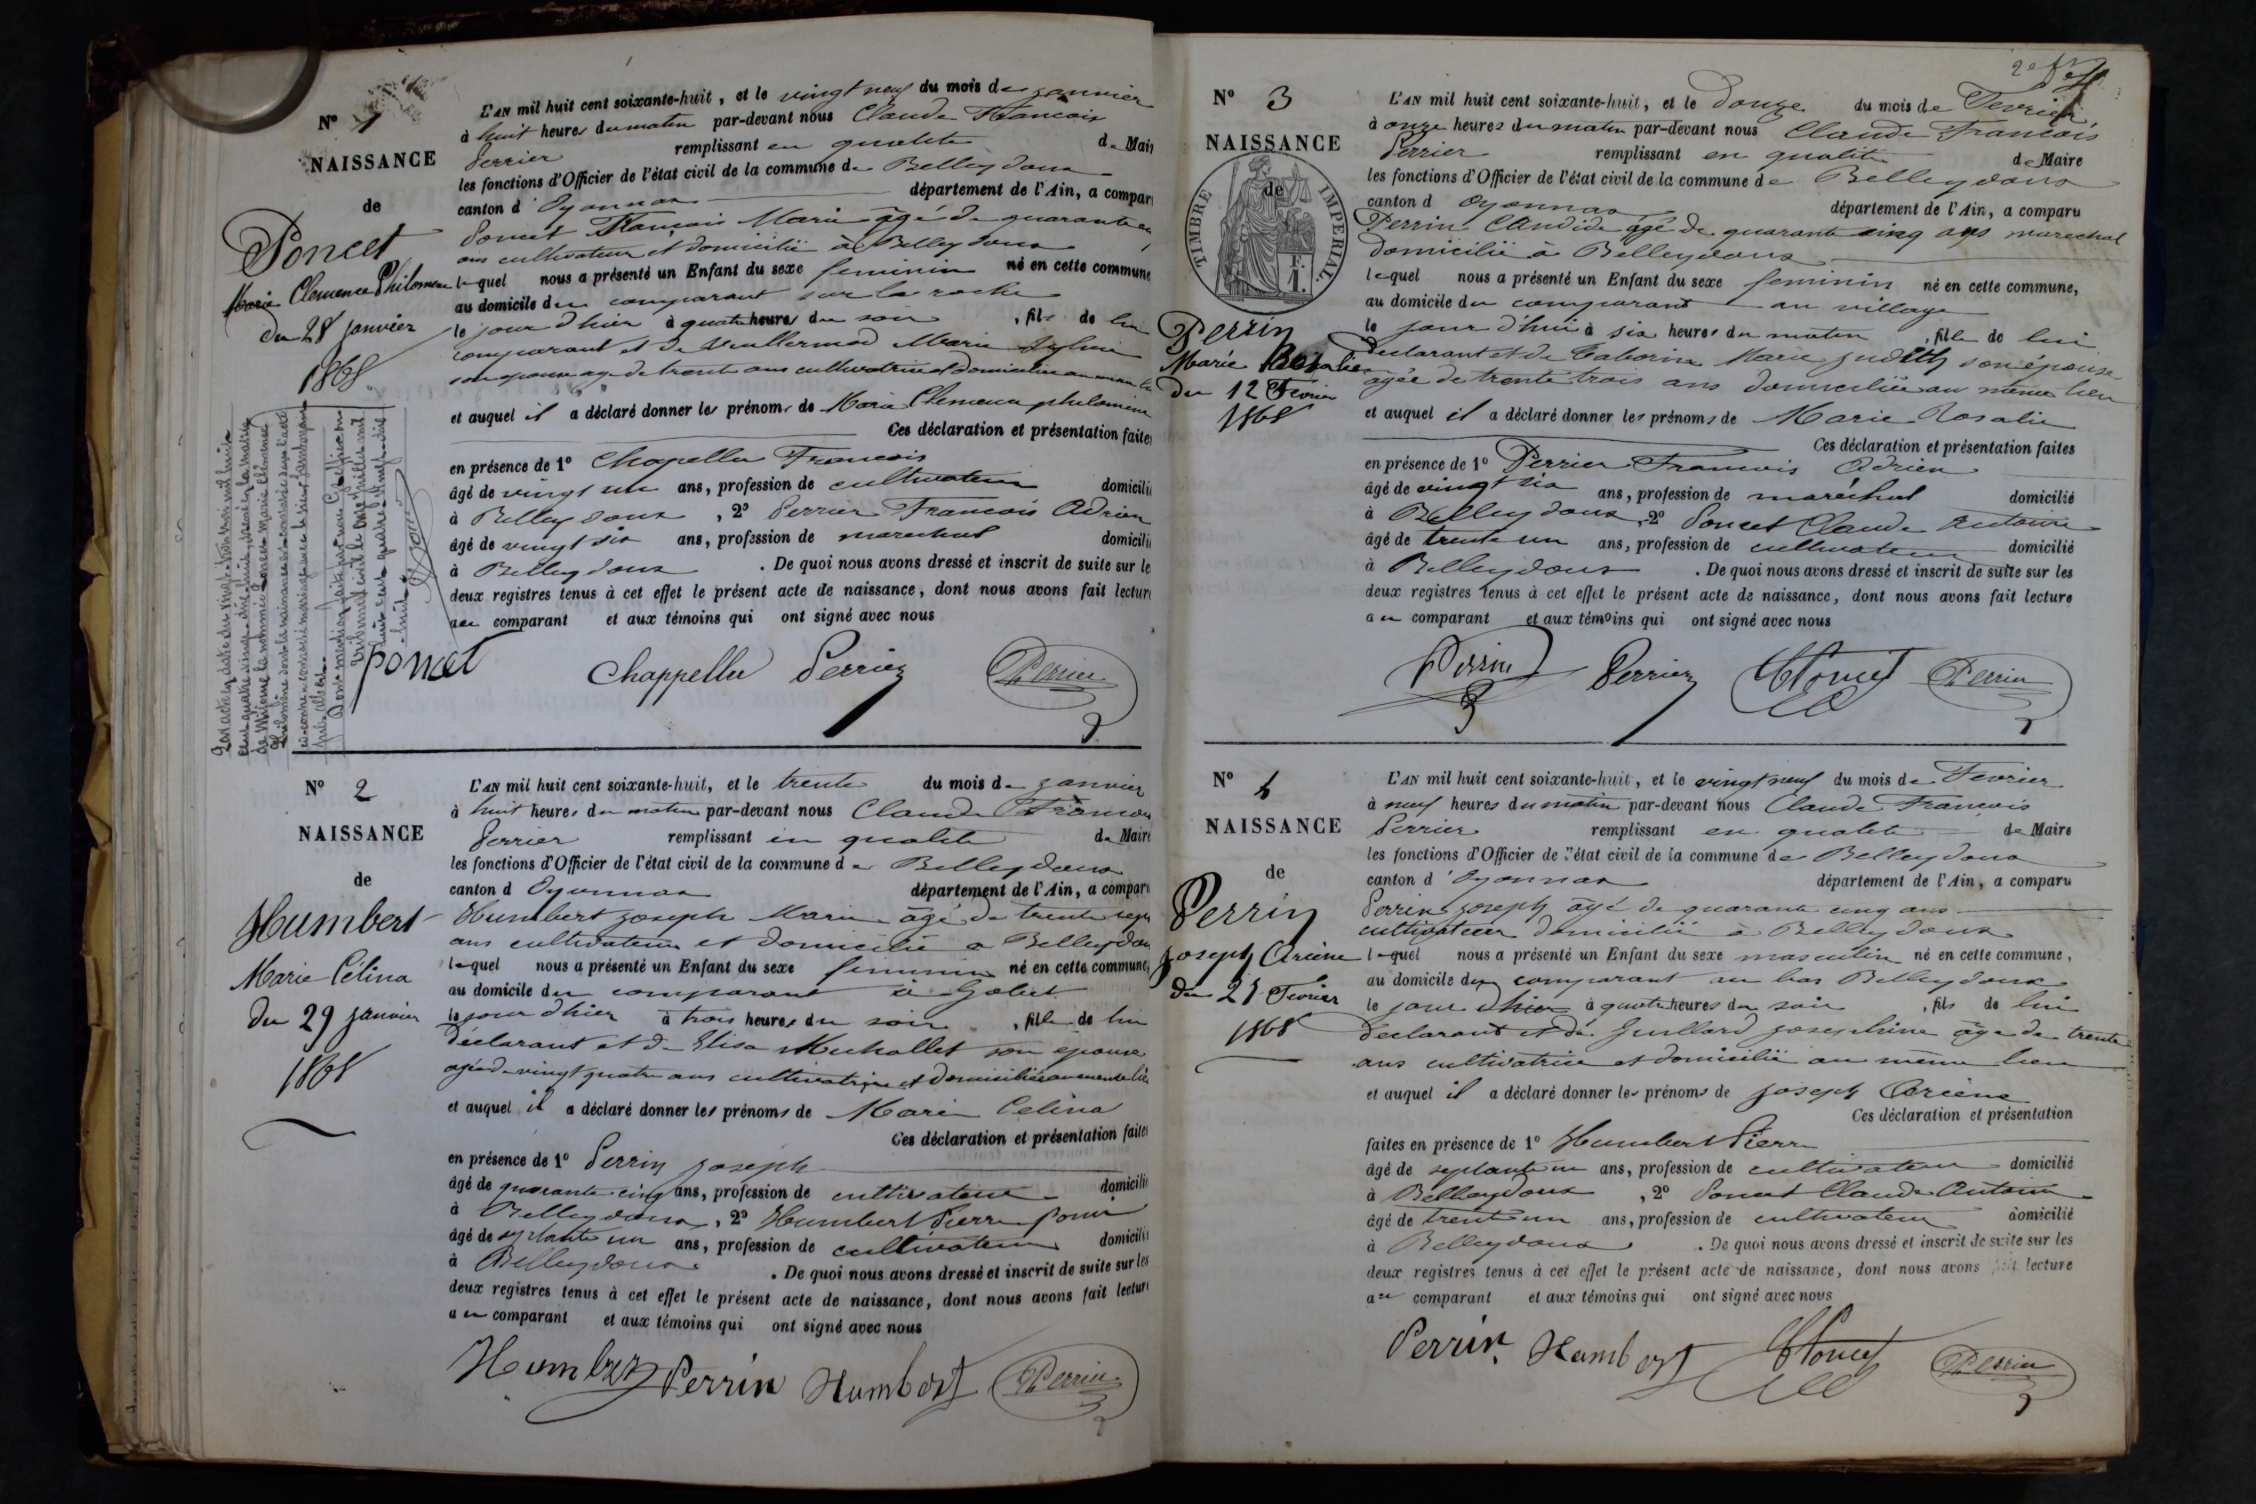 N° 1
NAISSANCE
de
Poncet
Marie Clemence Philomene
du 28 janvier
1868
L'AN mil huit cent soixante-huit, et le vingt neuf du mois de janvier
à huit heures du matin par-devant nous Claude Francois
Perrier remplissant en qualité de Mair
les fonctions d'Officier de l'état civil de la commune de Belleydoux
canton d'Oyonnax département de l'Ain, a compar
Poncet François Marie âgé de quarante
ans cultivateur et domicilié à Belleydoux
lequel nous a présenté un Enfant du sexe feminin né en cette commune
au domicile du comparant sur la roche
le jour d'hier à quatre heures du soir, fille de lui
comparant et de Vuillermoz Marie
son epouse age de trente ans cultivatrice et domiciliée au meme
et auquel il a déclaré donner les prénoms de Marie Clemence philomene
Ces déclaration et présentation faites
en présence de 1° Chapellu Francois
âgé de vingt un ans, profession de cultivateur domicilié
à Belleydoux, 2° Perrier Francois Adrien
âgé de vingt six ans, profession de marechal domicilié
à Belleydoux. De quoi nous avons dressé et inscrit de suite sur le
deux registres tenus à cet effet le présent acte de naissance, dont nous avons fait lectur
au comparant et aux témoins qui ont signé avec nous
poncet Chappellu Perrier Perrier
N° 2
NAISSANCE
de
Humbert
Marie Célina
du 29 janvier
1868
L'AN mil huit cent soixante-huit, et le trente du mois de janvier
à huit heures du matin par-devant nous Claude Francois
Perrier remplissant en qualité de Maire
les fonctions d'Officier de l'état civil de la commune de Belleydoux
canton d Oyonnax département de l'Ain, a comparu
Humbert joseph Marie âgé de trente sept
ans cultivateur et domicilié a Belleydou
lequel nous a présenté un Enfant du sexe feminin né en cette commune,
au domicile du comparant à Gobet
le jour d'hier à trois heures du soir, fille de lui
déclarant et de Elisa Muhollet son epouse
agée de vingt quatre ans cultivatrice et domiciliée au meme lieu
et auquel il a déclaré donner les prénoms de Marie Celina
Ces déclaration et présentation faites
en présence de 1° Perrin joseph
âgé de quarante cinq ans, profession de cultivateur domicilié
à Belleydoux, 2° Humbert Pierre
âgé de septante un ans, profession de cultivateur domicilié
à Belleydoux. De quoi nous avons dressé et inscrit de suite sur les
deux registres tenus à cet effet le présent acte de naissance, dont nous avons fait lectur
au comparant et aux témoins qui ont signé avec nous
Humbert Perrin Humbert Perrier
N° 3
NAISSANCE
de
TIMBRE IMPERIAL
1 F.
Perrin
Marie Rosalie
du 12 Fevrier
1868
L'AN mil huit cent soixante-huit, et le douze du mois de Fevrier
à onze heures du matin par-devant nous Claude Francois
Perrier remplissant en qualité de Maire
les fonctions d'Officier de l'état civil de la commune de Belleydoux
canton d Oyonnax département de l'Ain, a comparu
Perrin Claudide âgé de quarante cinq ans marechal
domicilié à Belleydoux
lequel nous a présenté un Enfant du sexe feminin né en cette commune,
au domicile du comparant au village
le jour d'hui à six heures du matin, fille de lui
declarant et de Taborin Marie Judith son épouse
agée de trente trois ans domiciliée au même lieu
et auquel il a déclaré donner les prénoms de Marie Rosalie
Ces déclaration et présentation faites
en présence de 1° Perrier Francois Adrien
âgé de vingt six ans, profession de maréchal domicilié
à Belleydoux, 2° Poncet Claude Antoine
âgé de trente un ans, profession de cultivateur domicilié
à Belleydoux. De quoi nous avons dressé et inscrit de suite sur les
deux registres tenus à cet effet le présent acte de naissance, dont nous avons fait lecture
au comparant et aux témoins qui ont signé avec nous
Perrin Perrier Poncet Perrier
N° 4
NAISSANCE
de
Perrin
joseph Arcène
du 28 Fevrier
1868
L'AN mil huit cent soixante-huit, et le vingt neuf du mois de Fevrier
à neuf heures du matin par-devant nous Claude Francois
Perrier remplissant en qualité de Maire
les fonctions d'Officier de l'état civil de la commune de Belleydoux
canton d'Oyonnax département de l'Ain, a comparu
Perrin joseph âgé de quarante cinq ans
cultivateur domicilié à Belleydoux
lequel nous a présenté un Enfant du sexe masculin né en cette commune,
au domicile du comparant au bas Belleydoux
le jour d'hier à quatre heures du soir, fils de lui
déclarant et de Juillard josephine âge de trente
ans cultivatrice et domicilié au même lieu
et auquel il a déclaré donner les prénoms de joseph Arcène
Ces déclaration et présentation
faites en présence de 1° Humbert Pierre
âgé de septante un ans, profession de cultivateur domicilié
à Belleydoux, 2° Poncet Claude Antoine
âgé de trente un ans, profession de cultivateur domicilié
à Belleydoux. De quoi nous avons dressé et inscrit de suite sur les
deux registres tenus à cet effet le présent acte de naissance, dont nous avons fait lecture
au comparant et aux témoins qui ont signé avec nous
Perrin Humbert Poncet Perrier